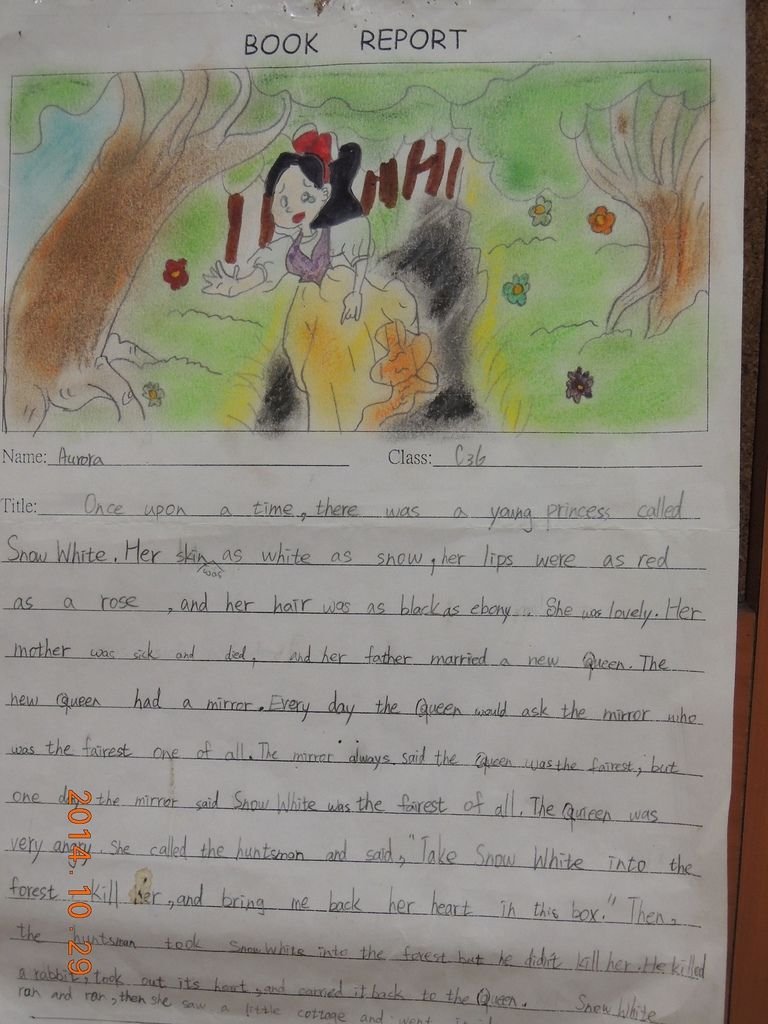 BOOK REPORT
Name: Aurora Class: C36
Title: Once upon a time, there was a young princess called
Snow White. Her skin was as white as snow, her lips were as red
as a rose, and her hair was as black as ebony. She was lovely. Her
mother was sick and died, and her father married a new Queen. The
new Queen had a mirror. Every day the Queen would ask the mirror who
was the fairest one of all. The mirror always said the Queen was the fairest, but
one day the mirror said Snow White was the fairest of all. The Queen was
very angry. She called the huntsman and said, "Take Snow White into the
forest, kill her, and bring me back her heart in this box." Then,
the huntsman took Snow White into the forest but he didn't kill her. He killed
a rabbit, took out its heart, and carried it back to the Queen. Snow White
ran and ran, then she saw a little cottage and went
2014.10.29